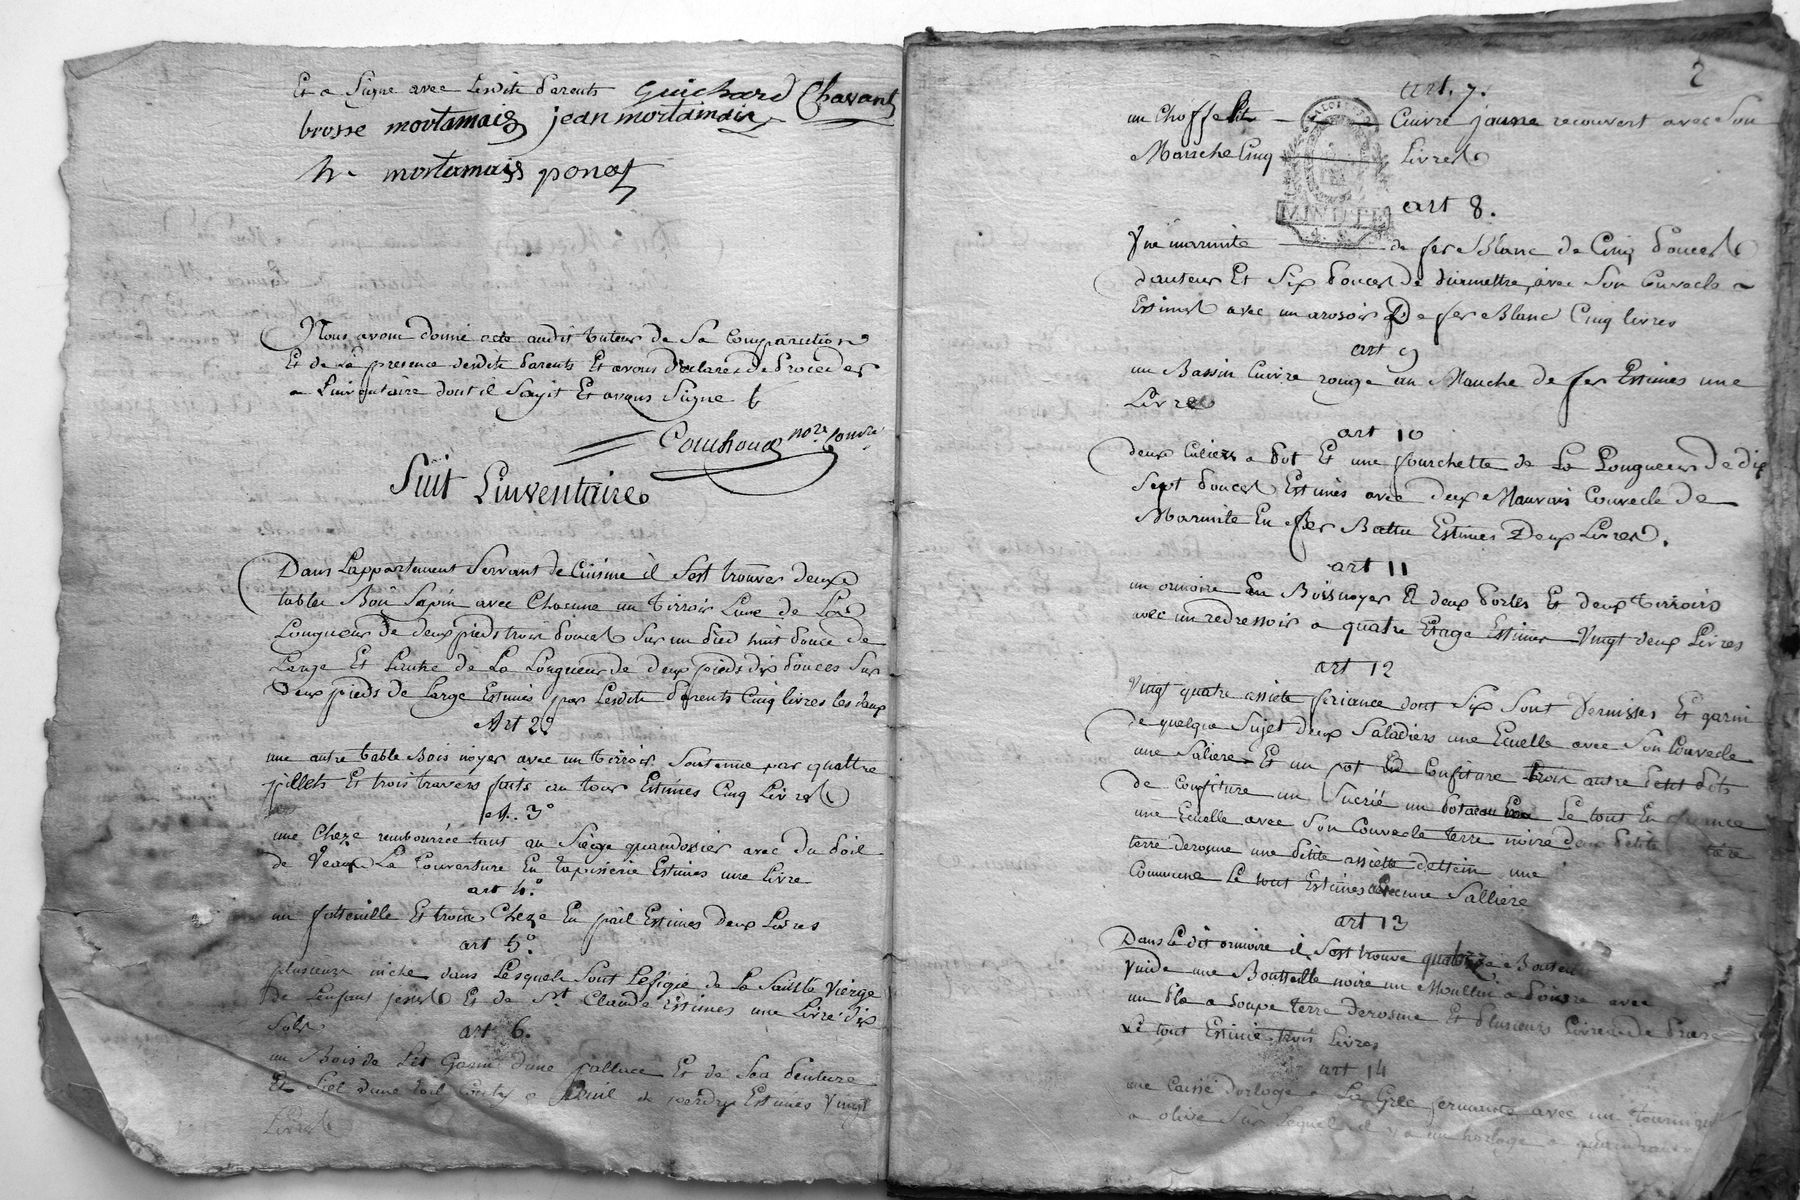 Et a Signe avec Lesdits Parents Guichard Chavant
brosse mortamais jean mortamais
mortamais ponos
Nous avons donné acte audit tuteur de Sa Comparution
Et de la presence desdits parents Et avons Declares de Proceder
a Linventaire dont il Sagit Et avons Signe
Couchoud nore Comre
Suit Linventaire
Dans Lappartement Servant de Cuisine il Sest trouver deux
table Bois Sapin avec Chacune un tirroir Lune de La
Longueur de deux pieds trois pouces Sur un pied huit pouce de
Large Et Lautre de La Longueur de deux pieds dix pouces Sur
Deux pieds de large Estimés par Lesdits parents Cinq livres les deux
Art 2º
une autre table Bois noyer avec un tirroir Soutenue par quattre
pillets Et trois travers faits au tour Estimés Cinq Livres
at. 3º
une Cheze rembourrée tant au Siege quaudossier avec du poil
de Veaux La Couverture En tapisserie Estimés une Livre
art 4º
un fotteuille Et trois Cheze En pail Estimes Deux Livres
art 5º
plusieurs niche dans Lesquels Sont Lefigie de la Sainte Vierge
de Lenfant jesus Et de St Claude Estimes une Livre dix
Sols
art 6.
un Bois de Lit Garni dune pallace Et de Sea penture
Et Siel dune toil Estimés Vingt
Livres
2
art. 7.
un Choffe Lit Cuivre jaune recouvert avec Son
Manche Cinq Livres
MINUTE
art 8.
Une marmite de fer Blanc de Cinq pouces
dauteur Et Six pouces de diamettre, avec Son Couvecle
Estimes avec un arosoir De fer Blanc Cinq livres
art 9
un Bassin Cuivre rouge un Manche de fer Estimes une
Livre
art 10
deux Culiers a pot Et une fourchette de La Longueur de dix
Sept pouces Estimés avec deux Mauvais Couvecle de
Marmite En fer Battu Estimés Deux Livres.
art 11
un ormoire En Bois noyer a deux portes Et deux tirroirs
avec un redressoir a quatre Etage Estimes Vingt deux Livres
art 12
Vingt quatre assiete feriance dont Six Sont Vernisses Et garni
de quelque Sujet deux Saladiers une Ecuelle avec Son Couvecle
une Saliere Et un pot a Confiture trois autre petit pots
de Confiture un Sucrié un Le tout En
une Ecuelle avec Son Couvecle terre noire deux petite
terre derosme une petite assiette dettein une
Commune Le tout Estimés avec une Salliere
art 13
Dans Le dit ormoire il Sest trouve quatorze
Vuide une Bouttelle noire un Moullin a poivre avec
un pla a Soupe terre derosme Et plusieurs
Le tout Estimé trois Livres
art 14
une Caisse dorloge a La Grec fermante avec un tourniquet
a olive Sur Lequel il y a un horloge a